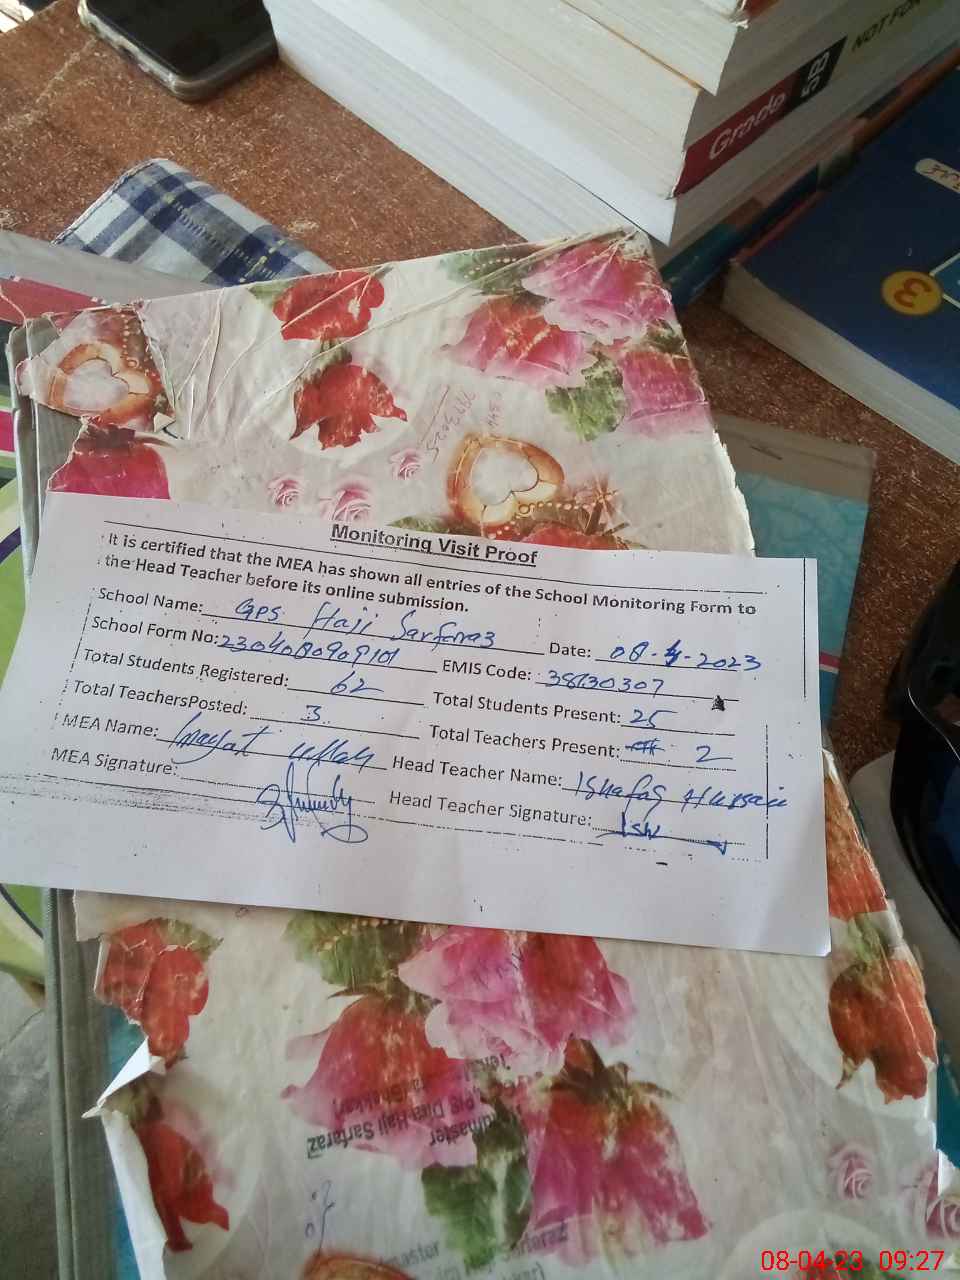 Grade 5B
NOT FOR
3
Monitoring Visit Proof
It is certified that the MEA has shown all entries of the School Monitoring Form to
the Head Teacher before its online submission.
School Name: GPS Haji Sarfaraz Date: 08-4-2023
School Form No: 2304080909101 EMIS Code: 38130307
Total Students Registered: 62 Total Students Present: 25
Total TeachersPosted: 3 Total Teachers Present: 2
MEA Name: Inayat ullah Head Teacher Name: Ishafaq Hussain
MEA Signature: Head Teacher Signature:
Dira Haji Sarfaraz
08-04-23 09:27